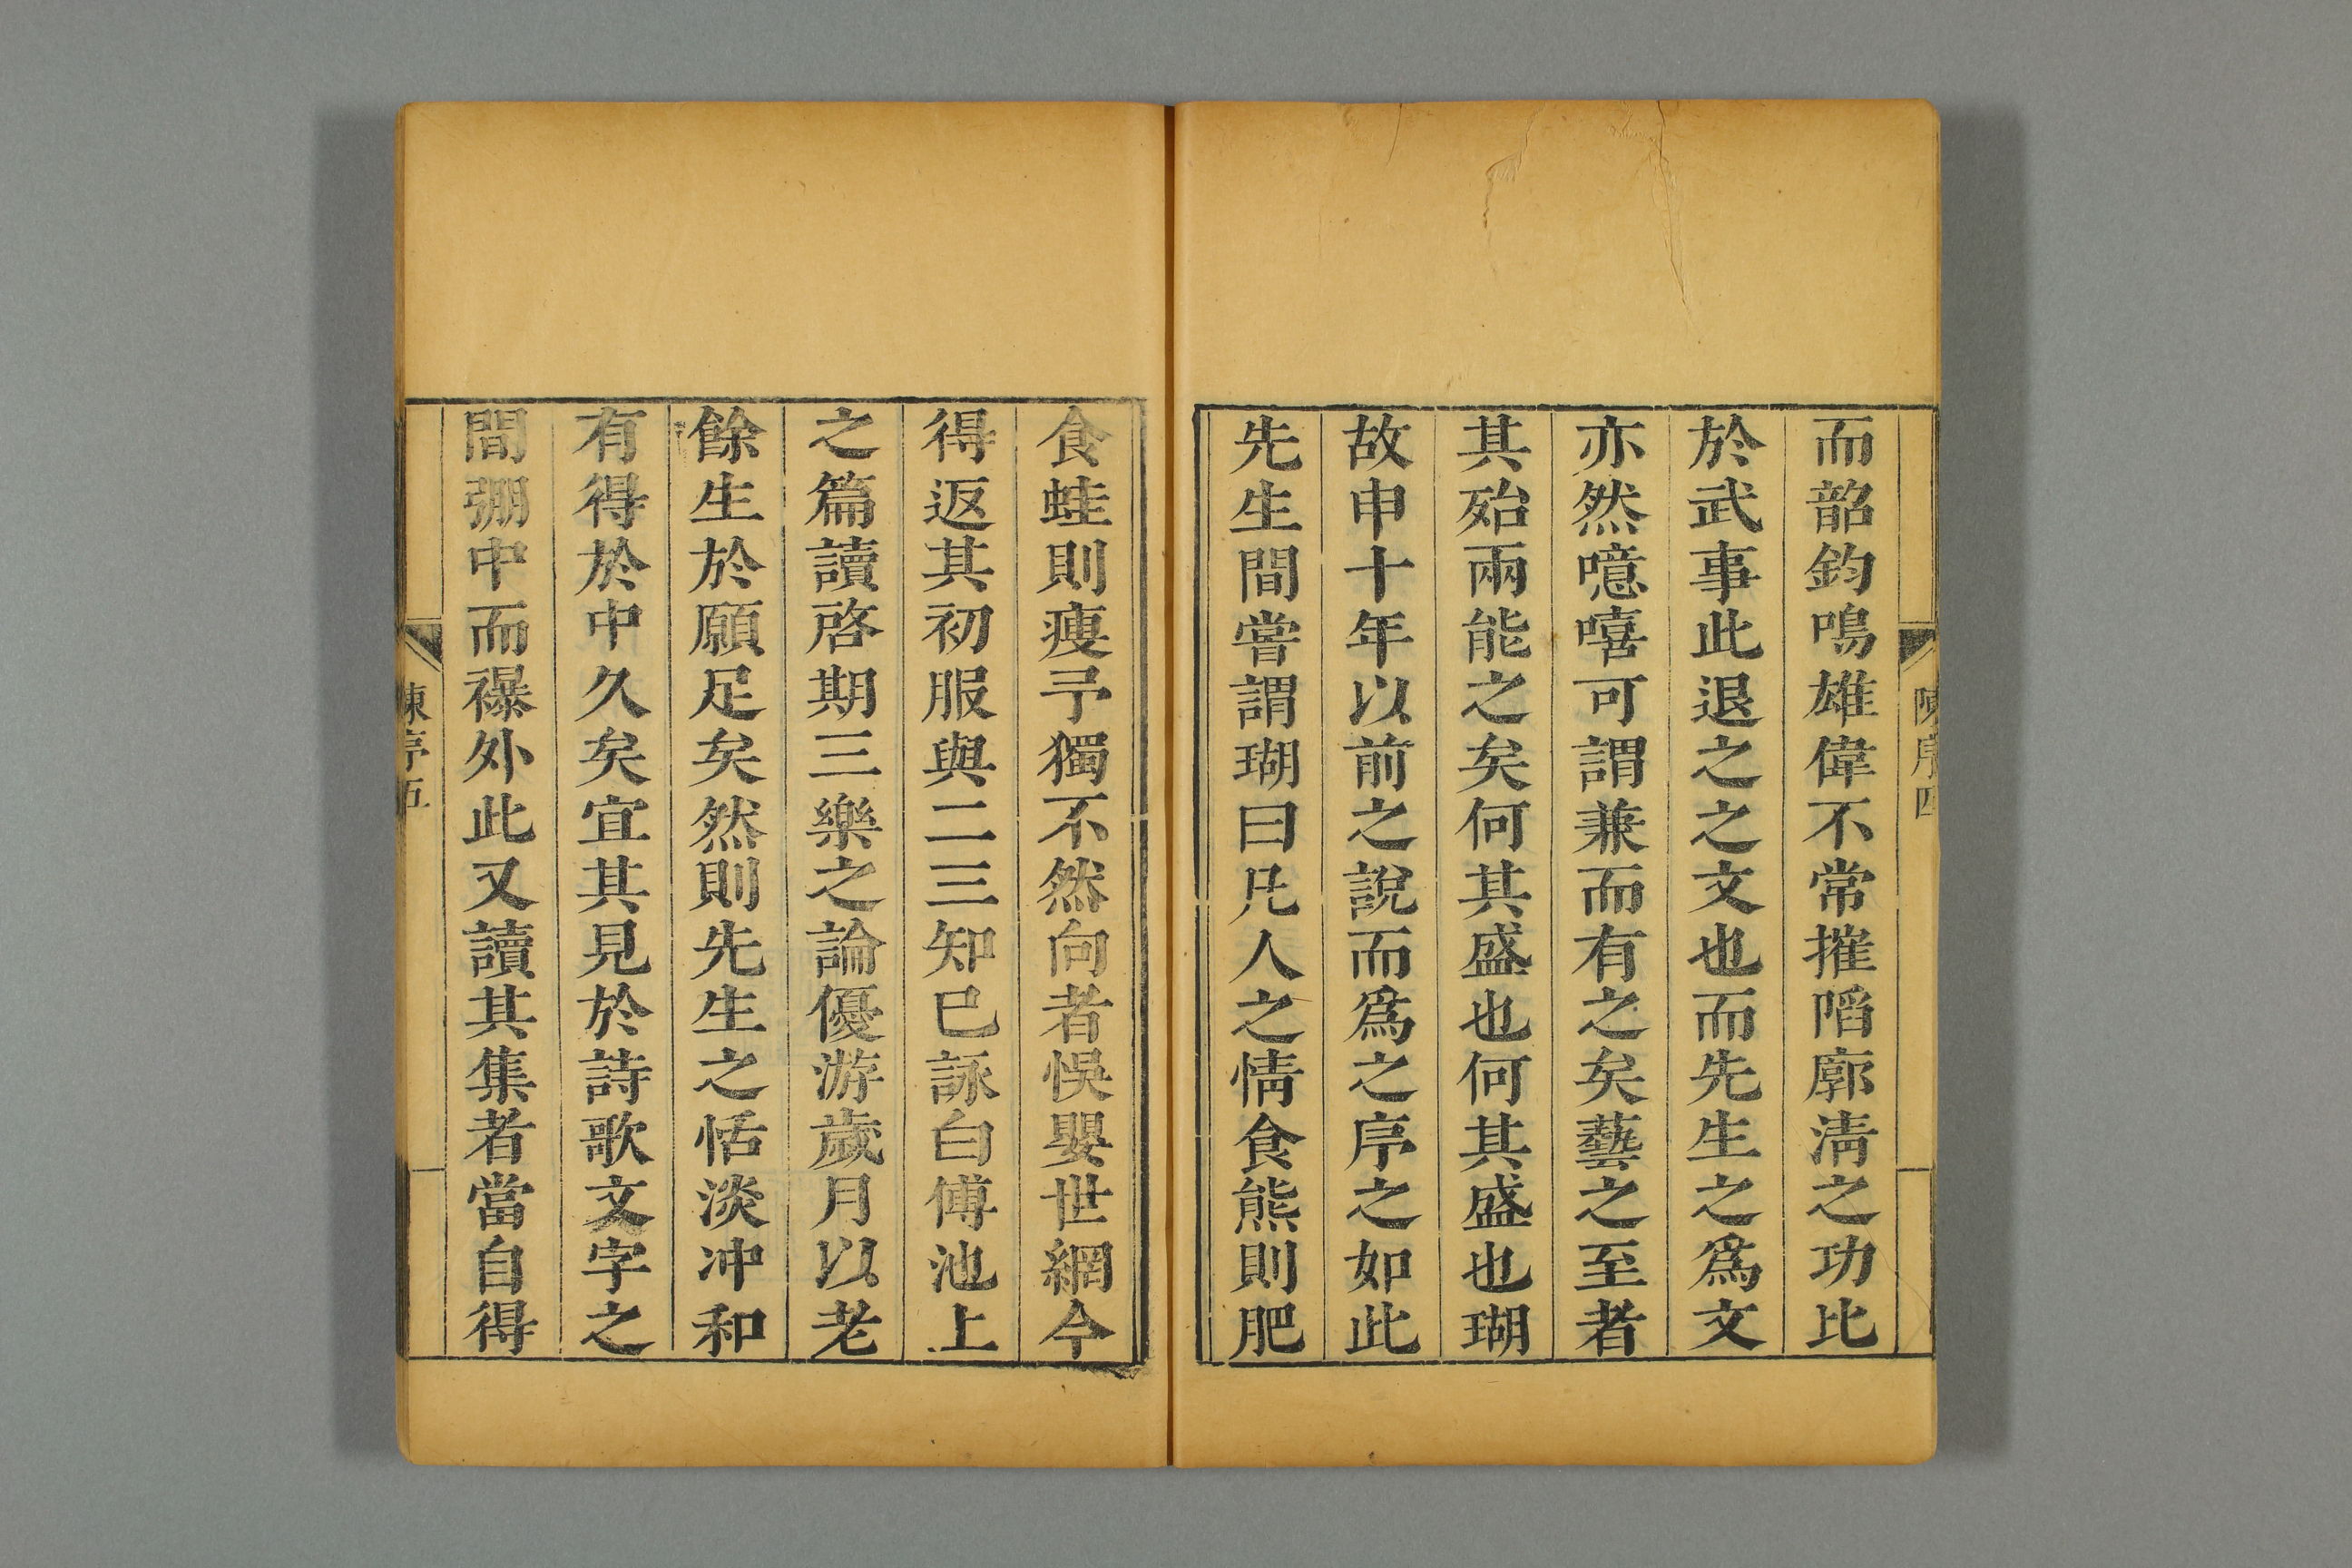 陳序四
而韶鈞鳴雄偉不常摧䧟廓清之功比
於武事此退之之文也而先生之爲文
亦然噫嘻可謂兼而有之矣藝之至者
其殆兩能之矣何其盛也何其盛也瑚
故申十年以前之說而爲之序之如此
先生間嘗謂瑚曰凡人之情食熊則肥
食蛙則瘦予獨不然向者悞嬰世網今
得返其初服與二三知巳詠白傅池上
之篇讀啓期三樂之論優游歲月以老
餘生於願足矣然則先生之恬淡冲和
有得於中久矣宜其見於詩歌文字之
間弸中而襮外此又讀其集者當自得
陳序五